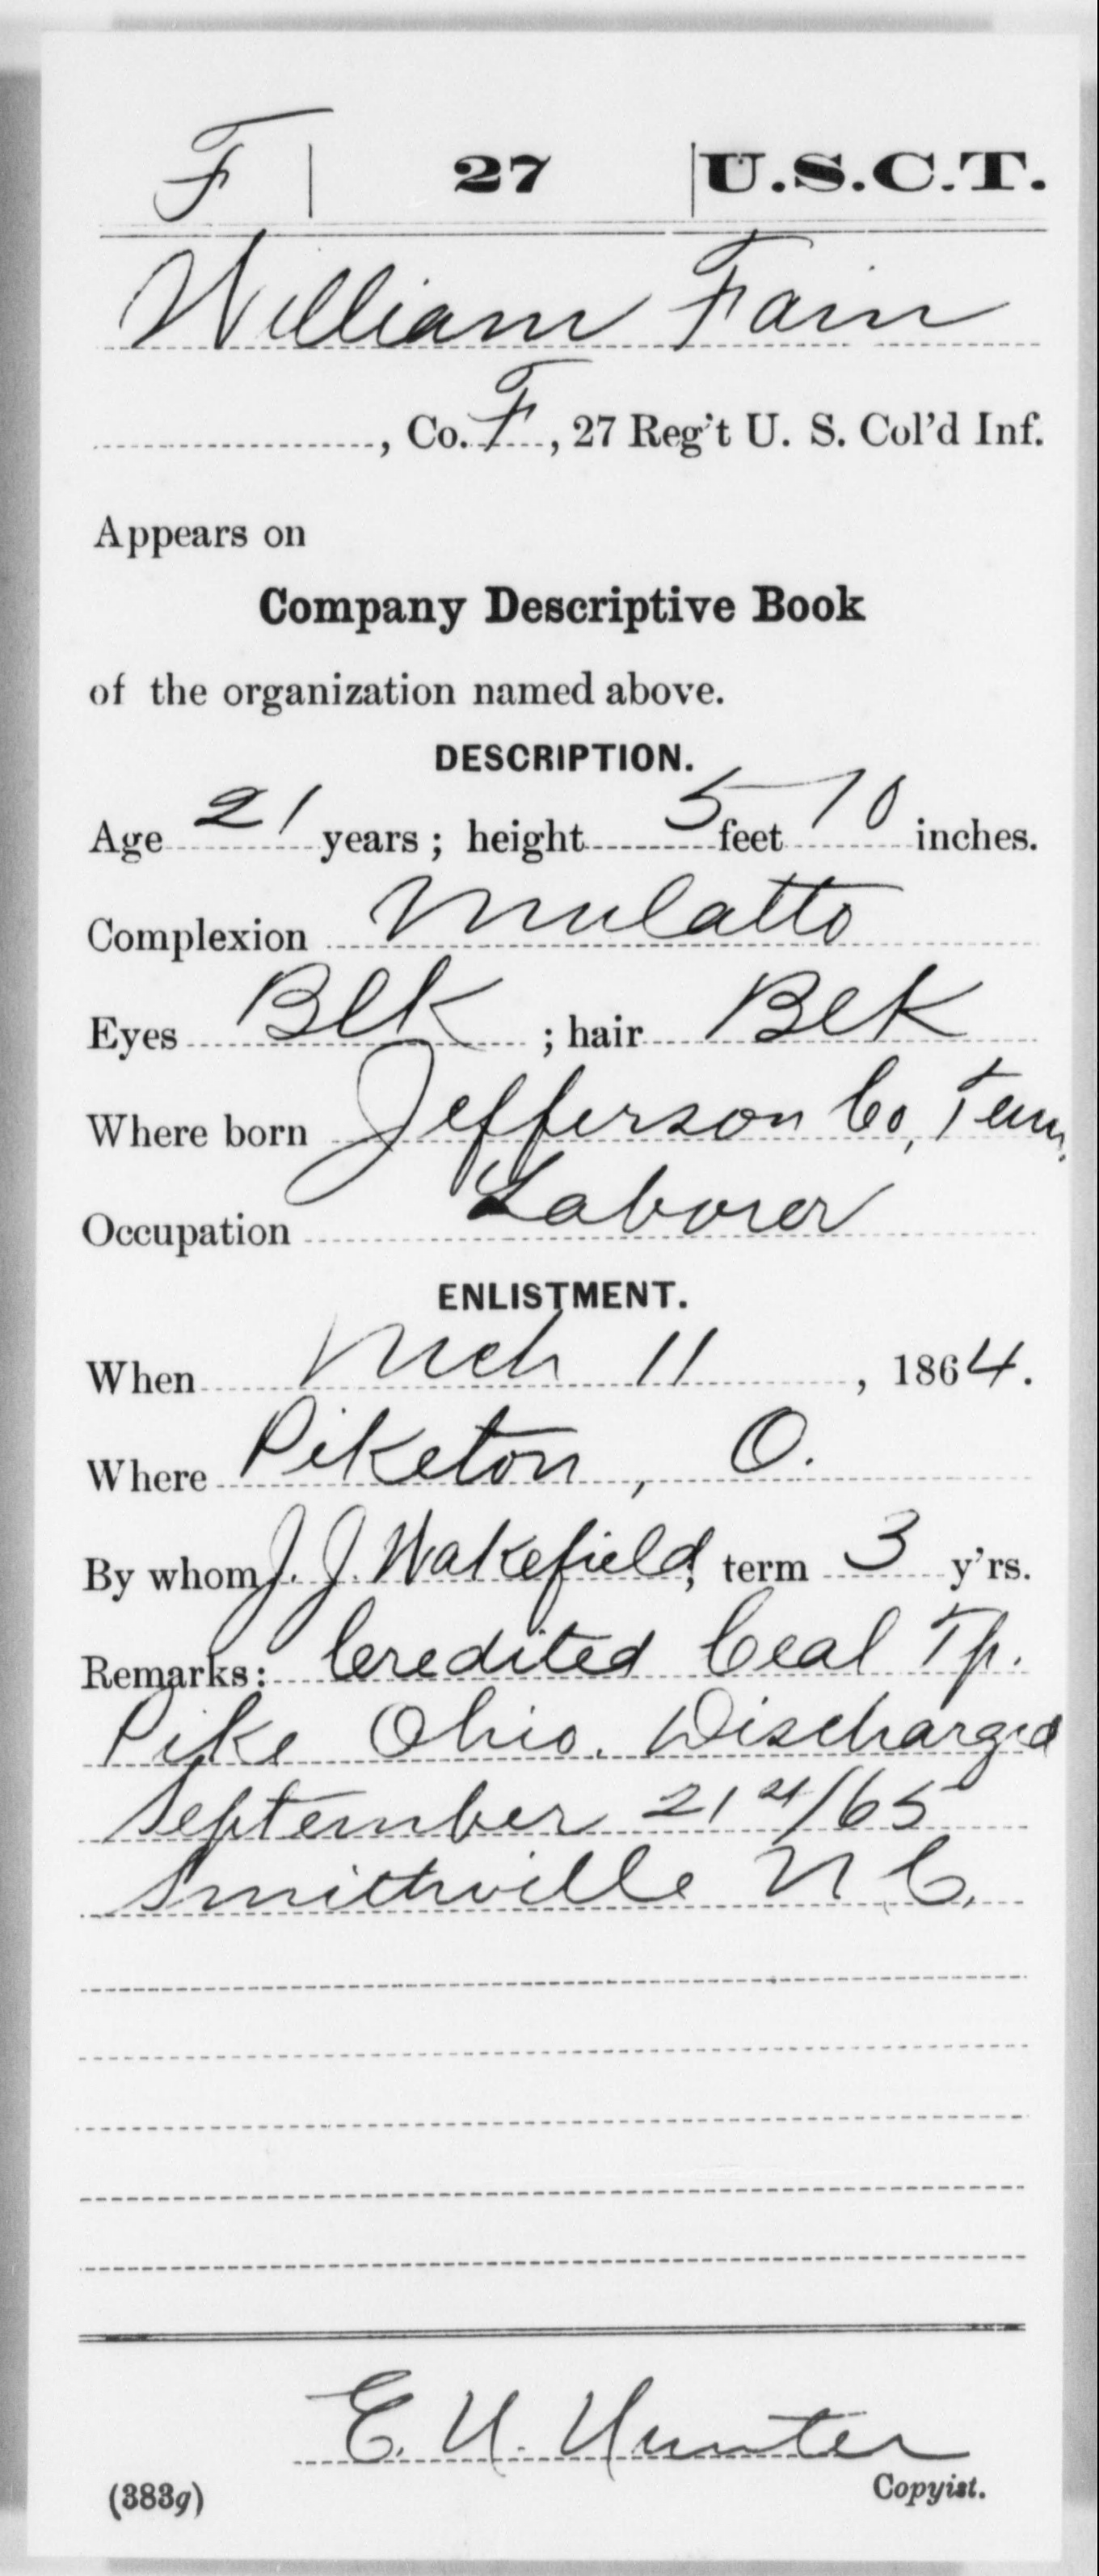 F | 27 | U.S.C.T.
William Fain
, Co. F, 27 Reg't U. S. Col'd Inf.
Appears on
Company Descriptive Book
of the organization named above.
DESCRIPTION.
Age 21 years; height 5 feet 10 inches.
Complexion Mulatto
Eyes Blk ; hair Blk
Where born Jefferson Co, Tenn.
Occupation Laborer
ENLISTMENT.
When Mch 11, 1864.
Where Piketon, O.
By whom J. J. Wakefield; term 3 y'rs.
Remarks: Credited Ceal Tp.
Pike Ohio. Discharged
September 21st/65
Smithville N C.
E. U. Hunter
Copyist.
(383g)